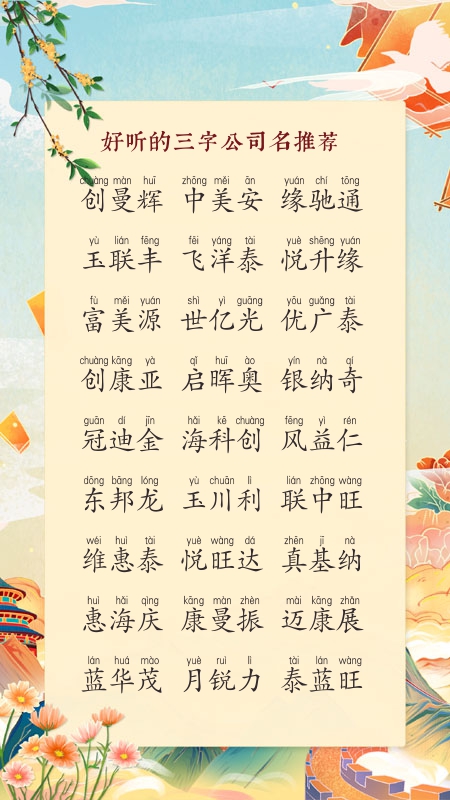 好听的三字公司名推荐
chuàng màn huī zhōng měi ān yuán chí tōng
创曼辉 中美安 缘驰通
yù lián fēng fēi yáng tài yuè shēng yuán
玉联丰 飞洋泰 悦升缘
fù měi yuán shì yì guāng yōu guǎng tài
富美源 世亿光 优广泰
chuàng kāng yà qǐ huī ào yín nà qí
创康亚 启晖奥 银纳奇
guān dí jīn hǎi kē chuàng fēng yì rén
冠迪金 海科创 风益仁
dōng bāng lóng yù chuān lì lián zhōng wàng
东邦龙 玉川利 联中旺
wéi huì tài yuè wàng dá zhēn jī nà
维惠泰 悦旺达 真基纳
huì hǎi qìng kāng màn zhèn mài kāng zhǎn
惠海庆 康曼振 迈康展
lán huá mào yuè ruì lì tài lán wàng
蓝华茂 月锐力 泰蓝旺